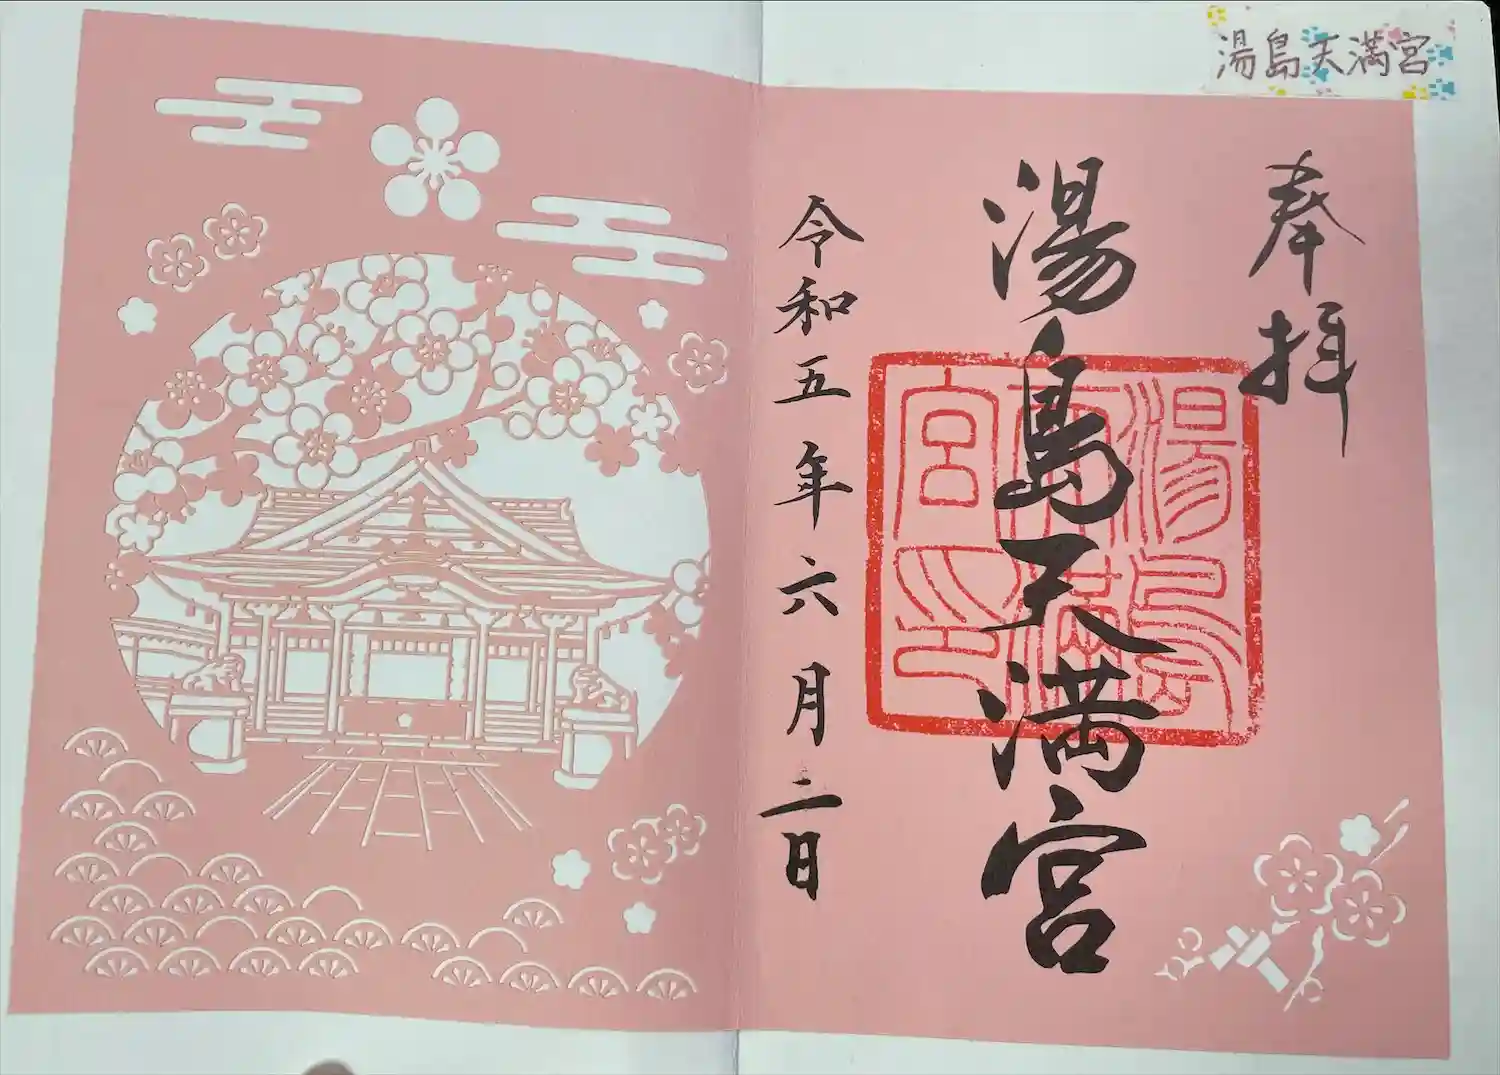 湯島天満宮
奉拝
湯島天満宮
湯島天満宮印
令和五年六月二日